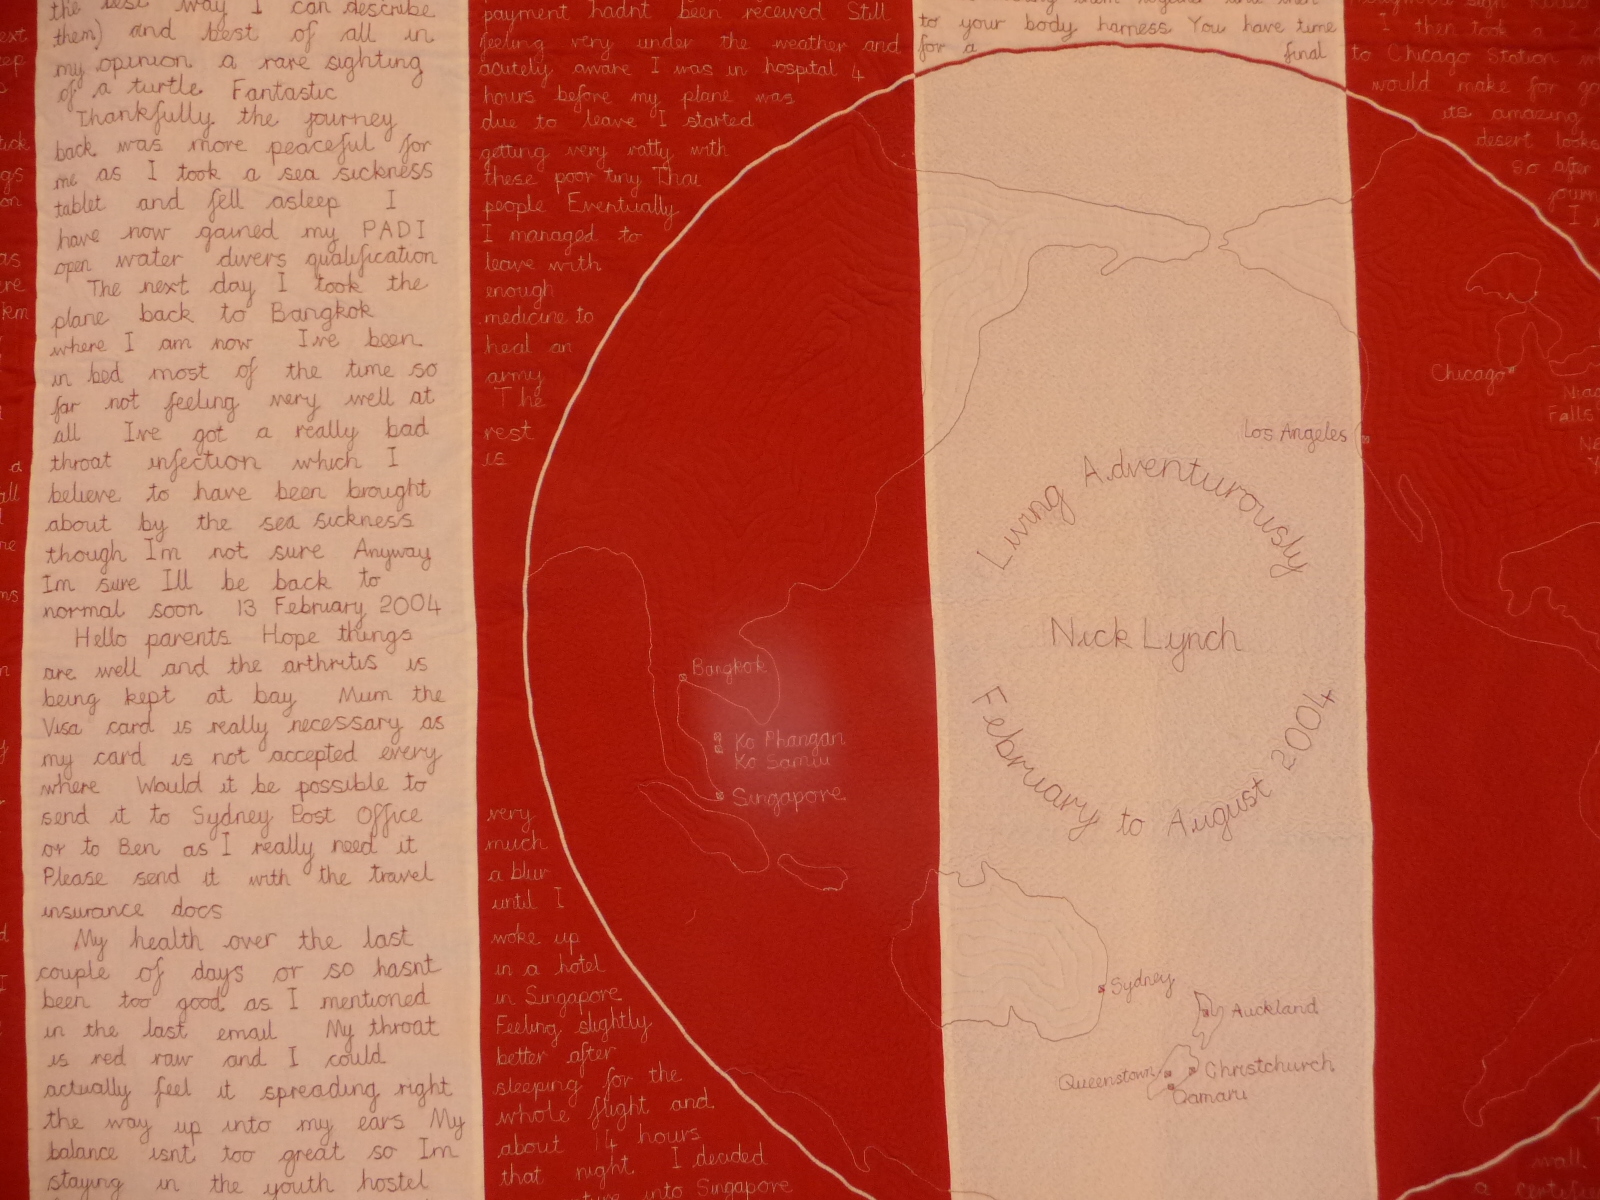 the best way I can describe
them) and best of all in
my opinion a rare sighting
of a turtle Fantastic
Thankfully the journey
back was more peaceful for
me as I took a sea sickness
tablet and fell asleep I
have now gained my PADI
open water divers qualification
The next day I took the
plane back to Bangkok
where I am now Ive been
in bed most of the time so
far not feeling very well at
all Ive got a really bad
throat infection which I
believe to have been brought
about by the sea sickness
though Im not sure Anyway
Im sure Ill be back to
normal soon 13 February 2004
Hello parents Hope things
are well and the arthritis is
being kept at bay Mum the
Visa card is really necessary as
my card is not accepted every
where Would it be possible to
send it to Sydney Post Office
or to Ben as I really need it
Please send it with the travel
insurance docs
My health over the last
couple of days or so hasnt
been too good as I mentioned
in the last email My throat
is red raw and I could
actually feel it spreading right
the way up into my ears My
balance isnt too great so Im
staying in the youth hostel
payment hadnt been received Still
feeling very under the weather and
acutely aware I was in hospital 4
hours before my plane was
due to leave I started
getting very ratty with
these poor tiny Thai
people Eventually
I managed to
leave with
enough
medicine to
heal an
army
The
rest
is
very
much
a blur
until I
woke up
in a hotel
in Singapore
Feeling slightly
better after
sleeping for the
whole flight and
about 14 hours
that night I decided
into Singapore
to your body harness You have time
for a final
I then took a
to Chicago Station
would make for
its amazing
desert looks
so after
Chicago
Falls
Los Angeles
Living Adventurously
Nick Lynch
February to August 2004
Bangkok
Ko Phangan
Ko Samiu
Singapore
Sydney
Auckland
Christchurch
Queenstown
Oamaru
wall